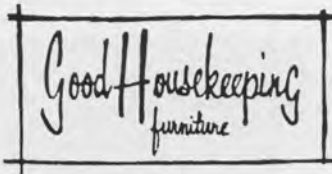 Good Housekeeping
furniture